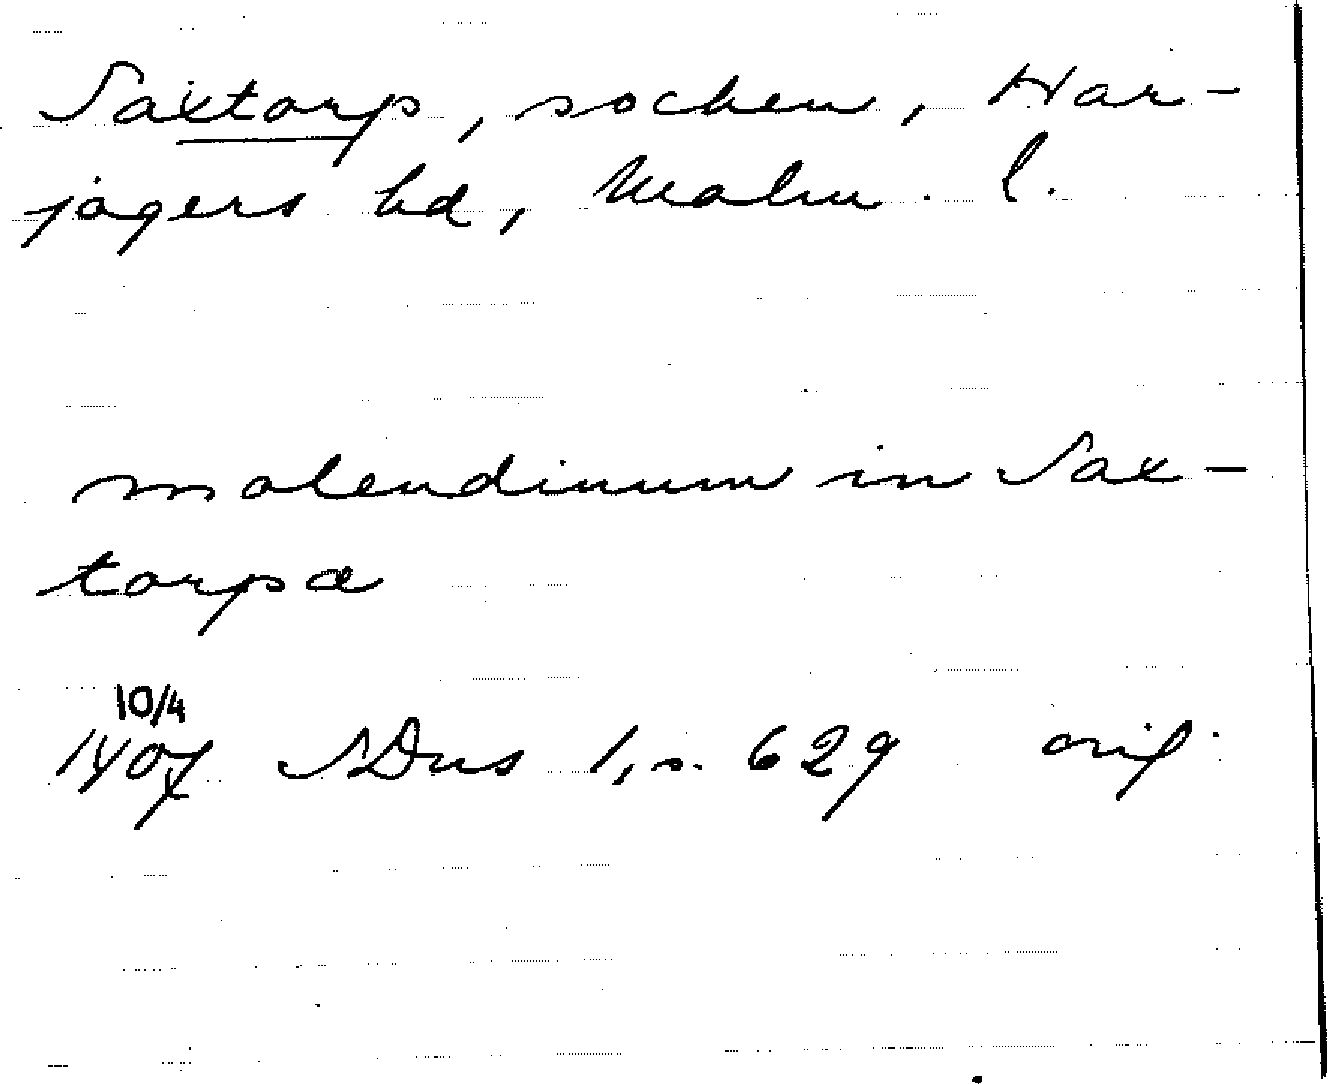 Saxtorp, socken, Har-
jagers hd, Malm. l.
molendinum in Sax-
torpa
10/4
1407 SDns 1, s. 629 orig.